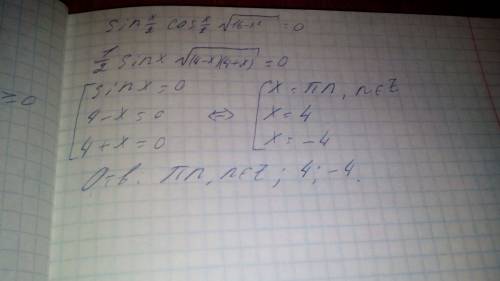 sin x/2 cos x/2 √(16-x²) = 0
1/2 sinx √((4-x)(4+x)) = 0
≥0
[ sinx = 0 [ x = πn, n∈Z
4-x=0 ⇔ x = 4
4+x=0 x = -4
Отв. πn, n∈Z; 4; -4.